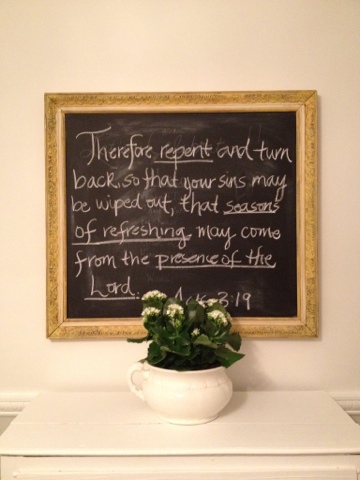 Therefore repent and turn
back, so that your sins may
be wiped out, that seasons
of refreshing may come
from the presence of the
Lord. Acts 3:19